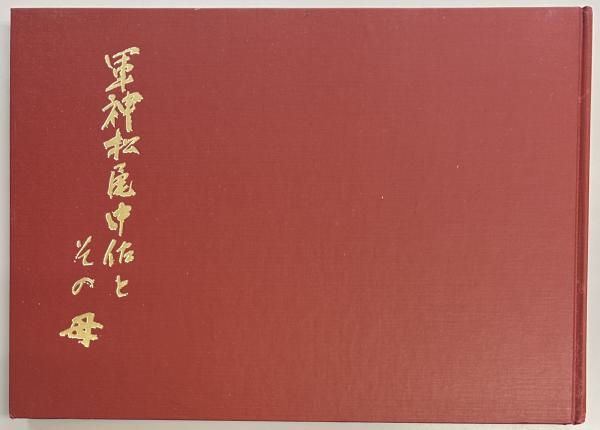 軍神松尾中佐と
その
母